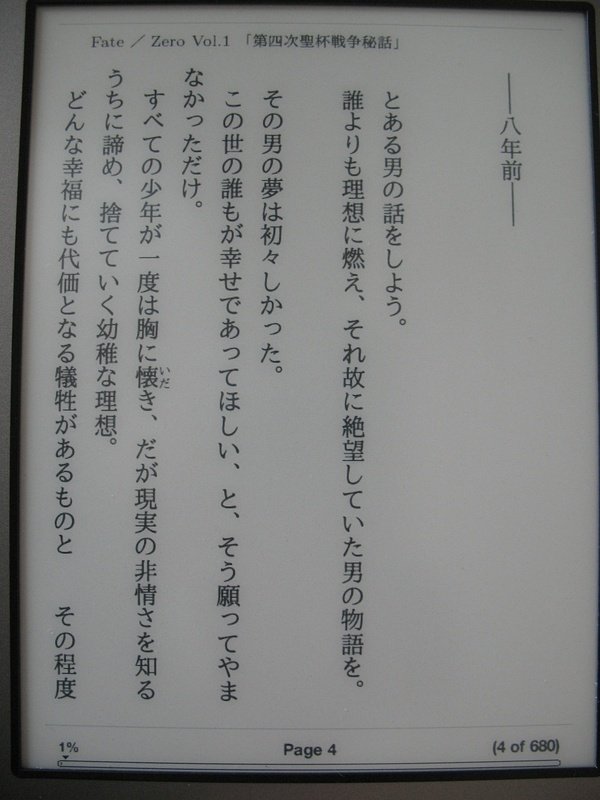 Fate / Zero Vol.1 「第四次聖杯戦争秘話」
――八年前――
とある男の話をしよう。
誰よりも理想に燃え、それ故に絶望していた男の物語を。
その男の夢は初々しかった。
この世の誰もが幸せであってほしい、と、そう願ってやま
なかっただけ。
すべての少年が一度は胸に懐いだき、だが現実の非情さを知る
うちに諦め、捨てていく幼稚な理想。
どんな幸福にも代価となる犠牲があるものと　その程度
1%
Page 4
(4 of 680)